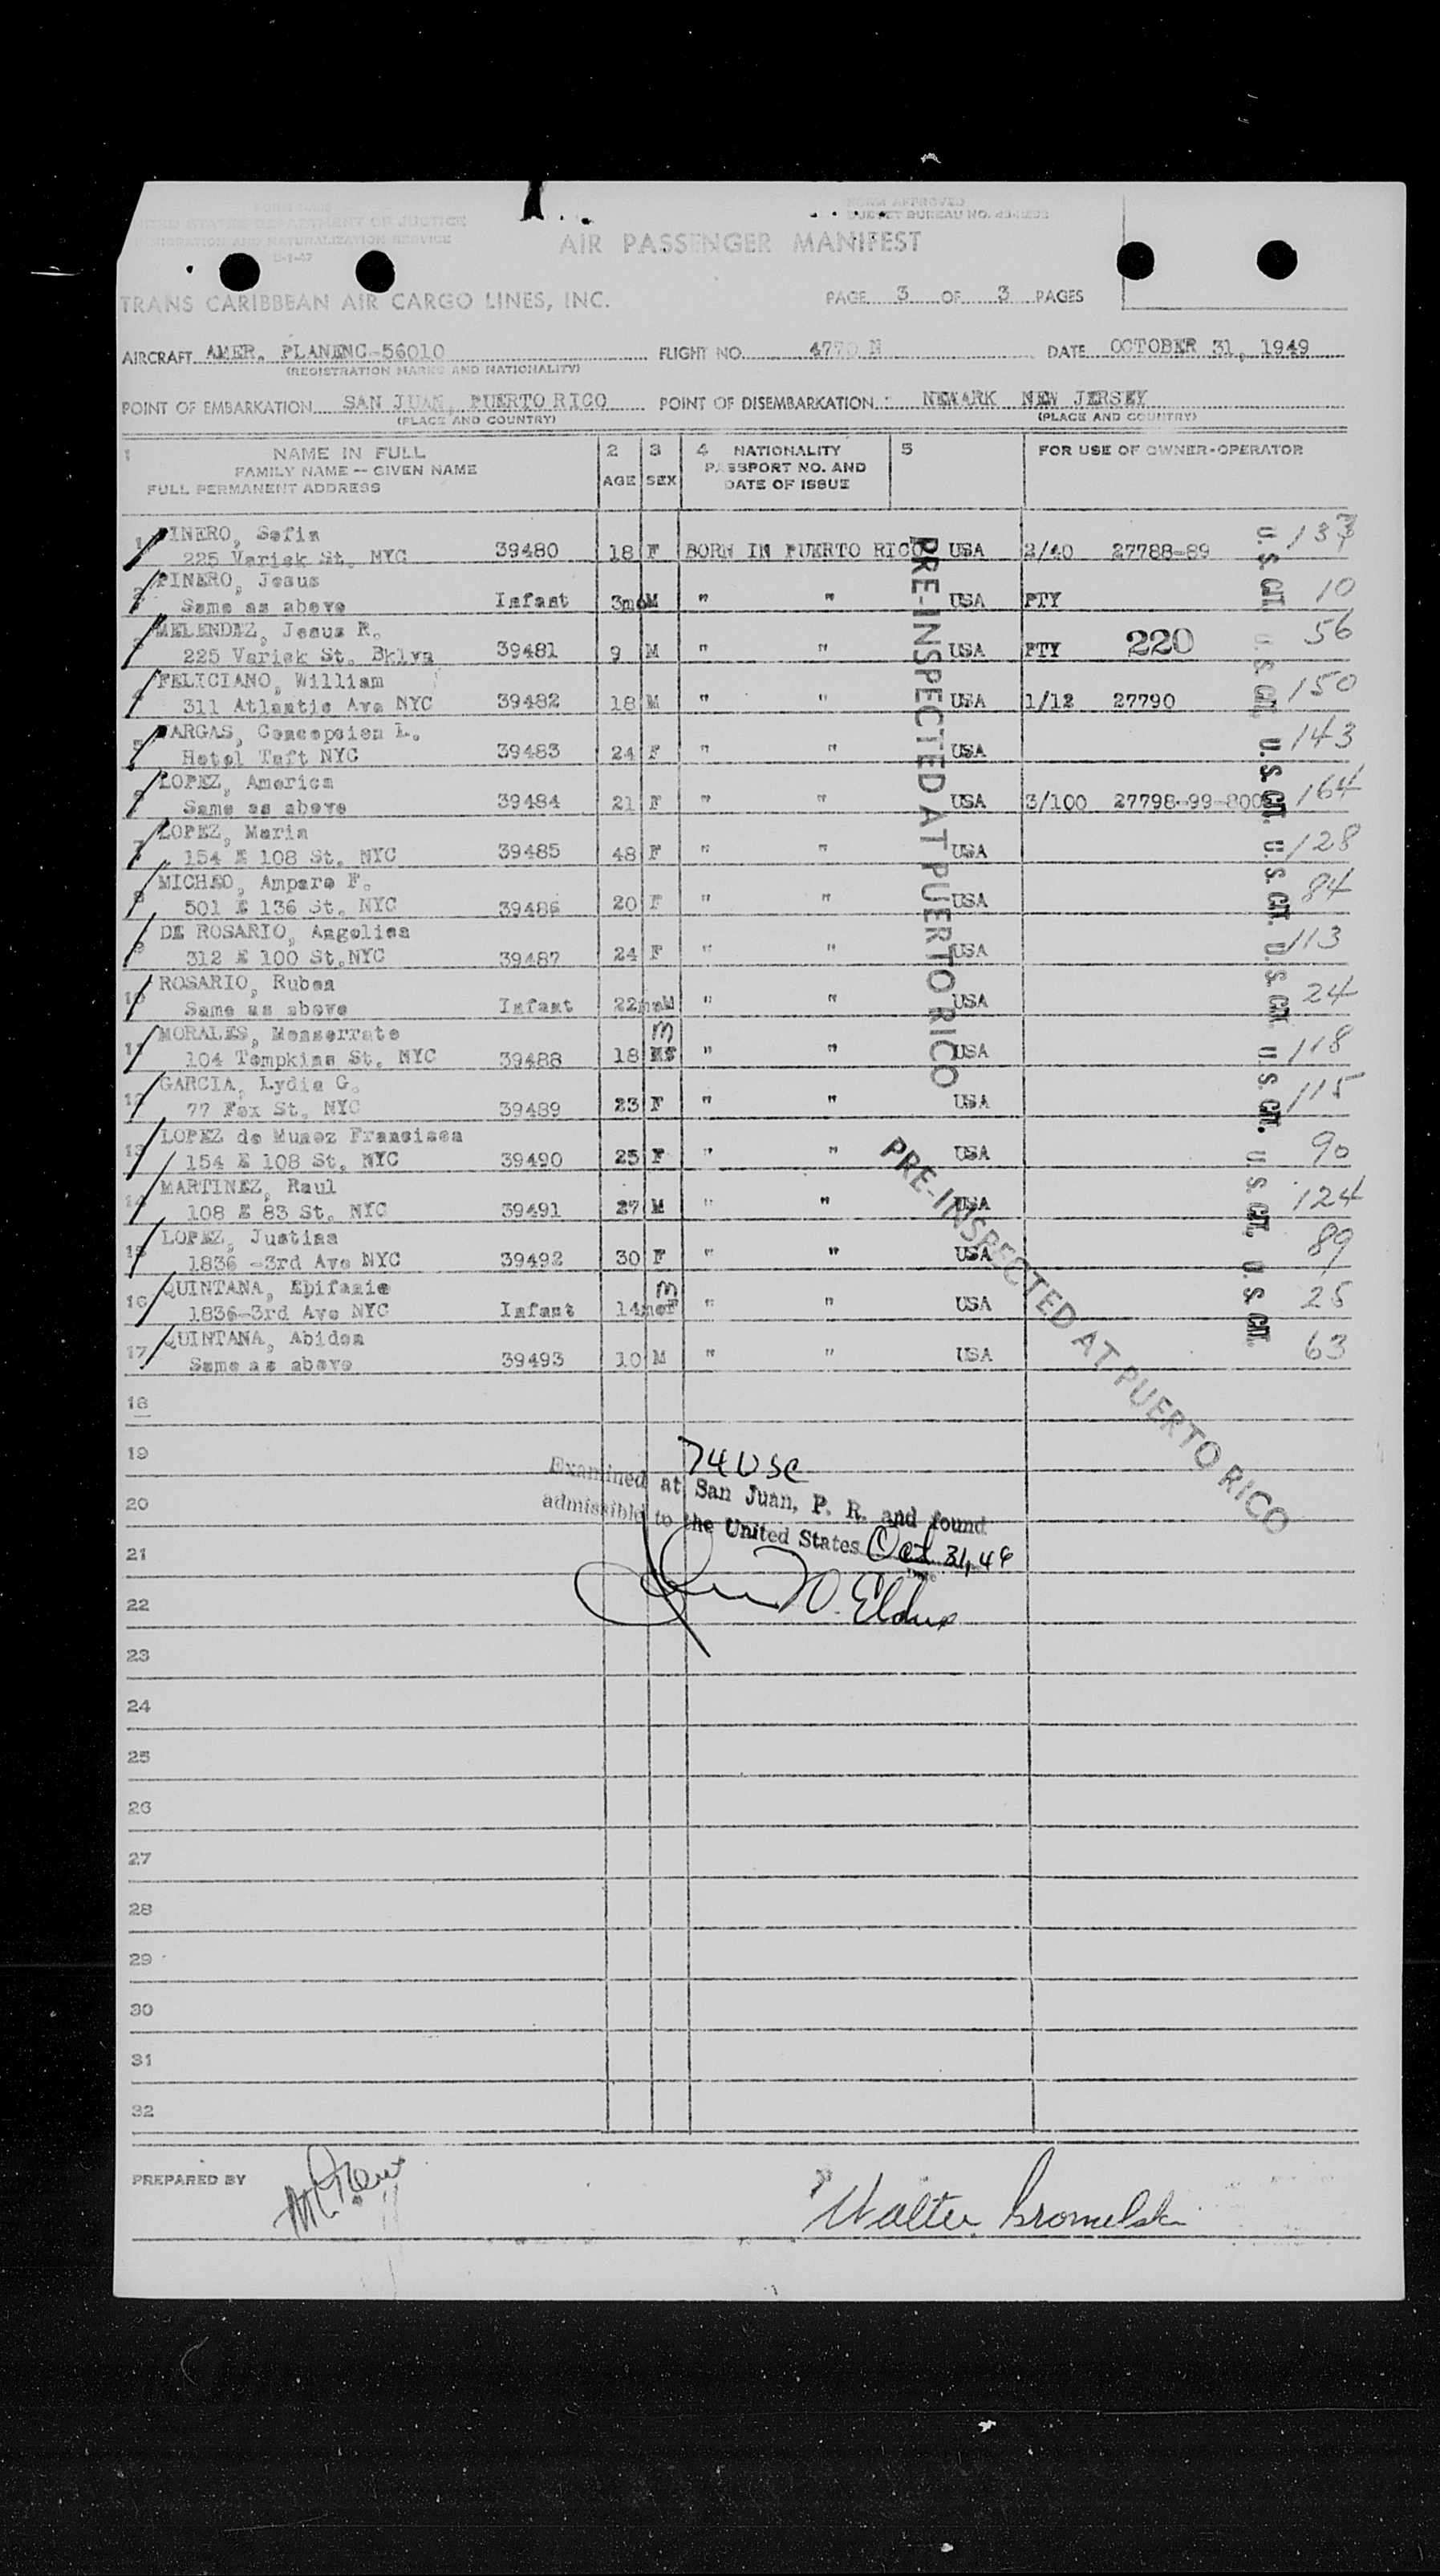 FORM I-466
UNITED STATES DEPARTMENT OF JUSTICE
IMMIGRATION AND NATURALIZATION SERVICE
FORM APPROVED
BUDGET BUREAU NO.
AIR PASSENGER MANIFEST
TRANS CARIBBEAN AIR CARGO LINES, INC.
PAGE 3 OF 3 PAGES
AIRCRAFT AMER. PLANENC-56010 FLIGHT NO. 4770 N DATE OCTOBER 31, 1949
(REGISTRATION MARKS AND NATIONALITY)
POINT OF EMBARKATION SAN JUAN, PUERTO RICO POINT OF DISEMBARKATION NEWARK NEW JERSEY
(PLACE AND COUNTRY) (PLACE AND COUNTRY)
1 NAME IN FULL 2 3 4 NATIONALITY 5 FOR USE OF OWNER-OPERATOR
FAMILY NAME -- GIVEN NAME PASSPORT NO. AND
FULL PERMANENT ADDRESS AGE SEX DATE OF ISSUE
1 PINERO, Sofia
225 Varick St. NYC 39480 18 F BORN IN PUERTO RICO USA 2/40 27788-89 U.S. CIT. 137
2 PINERO, Jesus
Same as above Infant 3mo M " " USA PTY 10
3 MELENDEZ, Jesus R.
225 Varick St. Bklyn 39481 9 M " " USA PTY 220 U.S. CIT. 56
4 FELICIANO, William
311 Atlantic Ave NYC 39482 18 M " " USA 1/12 27790 150
5 VARGAS, Concepcion L.
Hotel Taft NYC 39483 24 F " " USA U.S. CIT. 143
6 LOPEZ, America
Same as above 39484 21 F " " USA 3/100 27798-99-800 164
7 LOPEZ, Maria
154 E 108 St. NYC 39485 48 F " " USA U.S. CIT. 128
8 MICHEO, Amparo F.
501 E 136 St. NYC 39486 20 F " " USA 84
9 DE ROSARIO, Angelica
312 E 100 St.NYC 39487 24 F " " USA U.S. CIT. 113
10 ROSARIO, Ruben
Same as above Infant 22mo M " " USA 24
11 MORALES, Monserrate M
104 Tompkins St. NYC 39488 18 " " USA U.S. CIT. 118
12 GARCIA, Lydia G.
77 Fox St. NYC 39489 23 F " " USA 115
13 LOPEZ de Munoz Francisca
154 E 108 St. NYC 39490 25 F " " USA U.S. CIT. 90
14 MARTINEZ, Raul
108 E 83 St. NYC 39491 27 M " " USA 124
15 LOPEZ, Justina
1836 -3rd Ave NYC 39492 30 F " " USA U.S. CIT. 89
16 QUINTANA, Epifanio M
1836-3rd Ave NYC Infant 14mo F " " USA 25
17 QUINTANA, Abidon
Same as above 39493 10 M " " USA 63
PRE-INSPECTED AT PUERTO RICO
PRE-INSPECTED AT PUERTO RICO
18
19
74 USC
Examined at San Juan, P. R. and found
20
admissible to the United States Oct 31, 49
Date
21
22
23
24
25
26
27
28
29
30
31
32
PREPARED BY
Walter